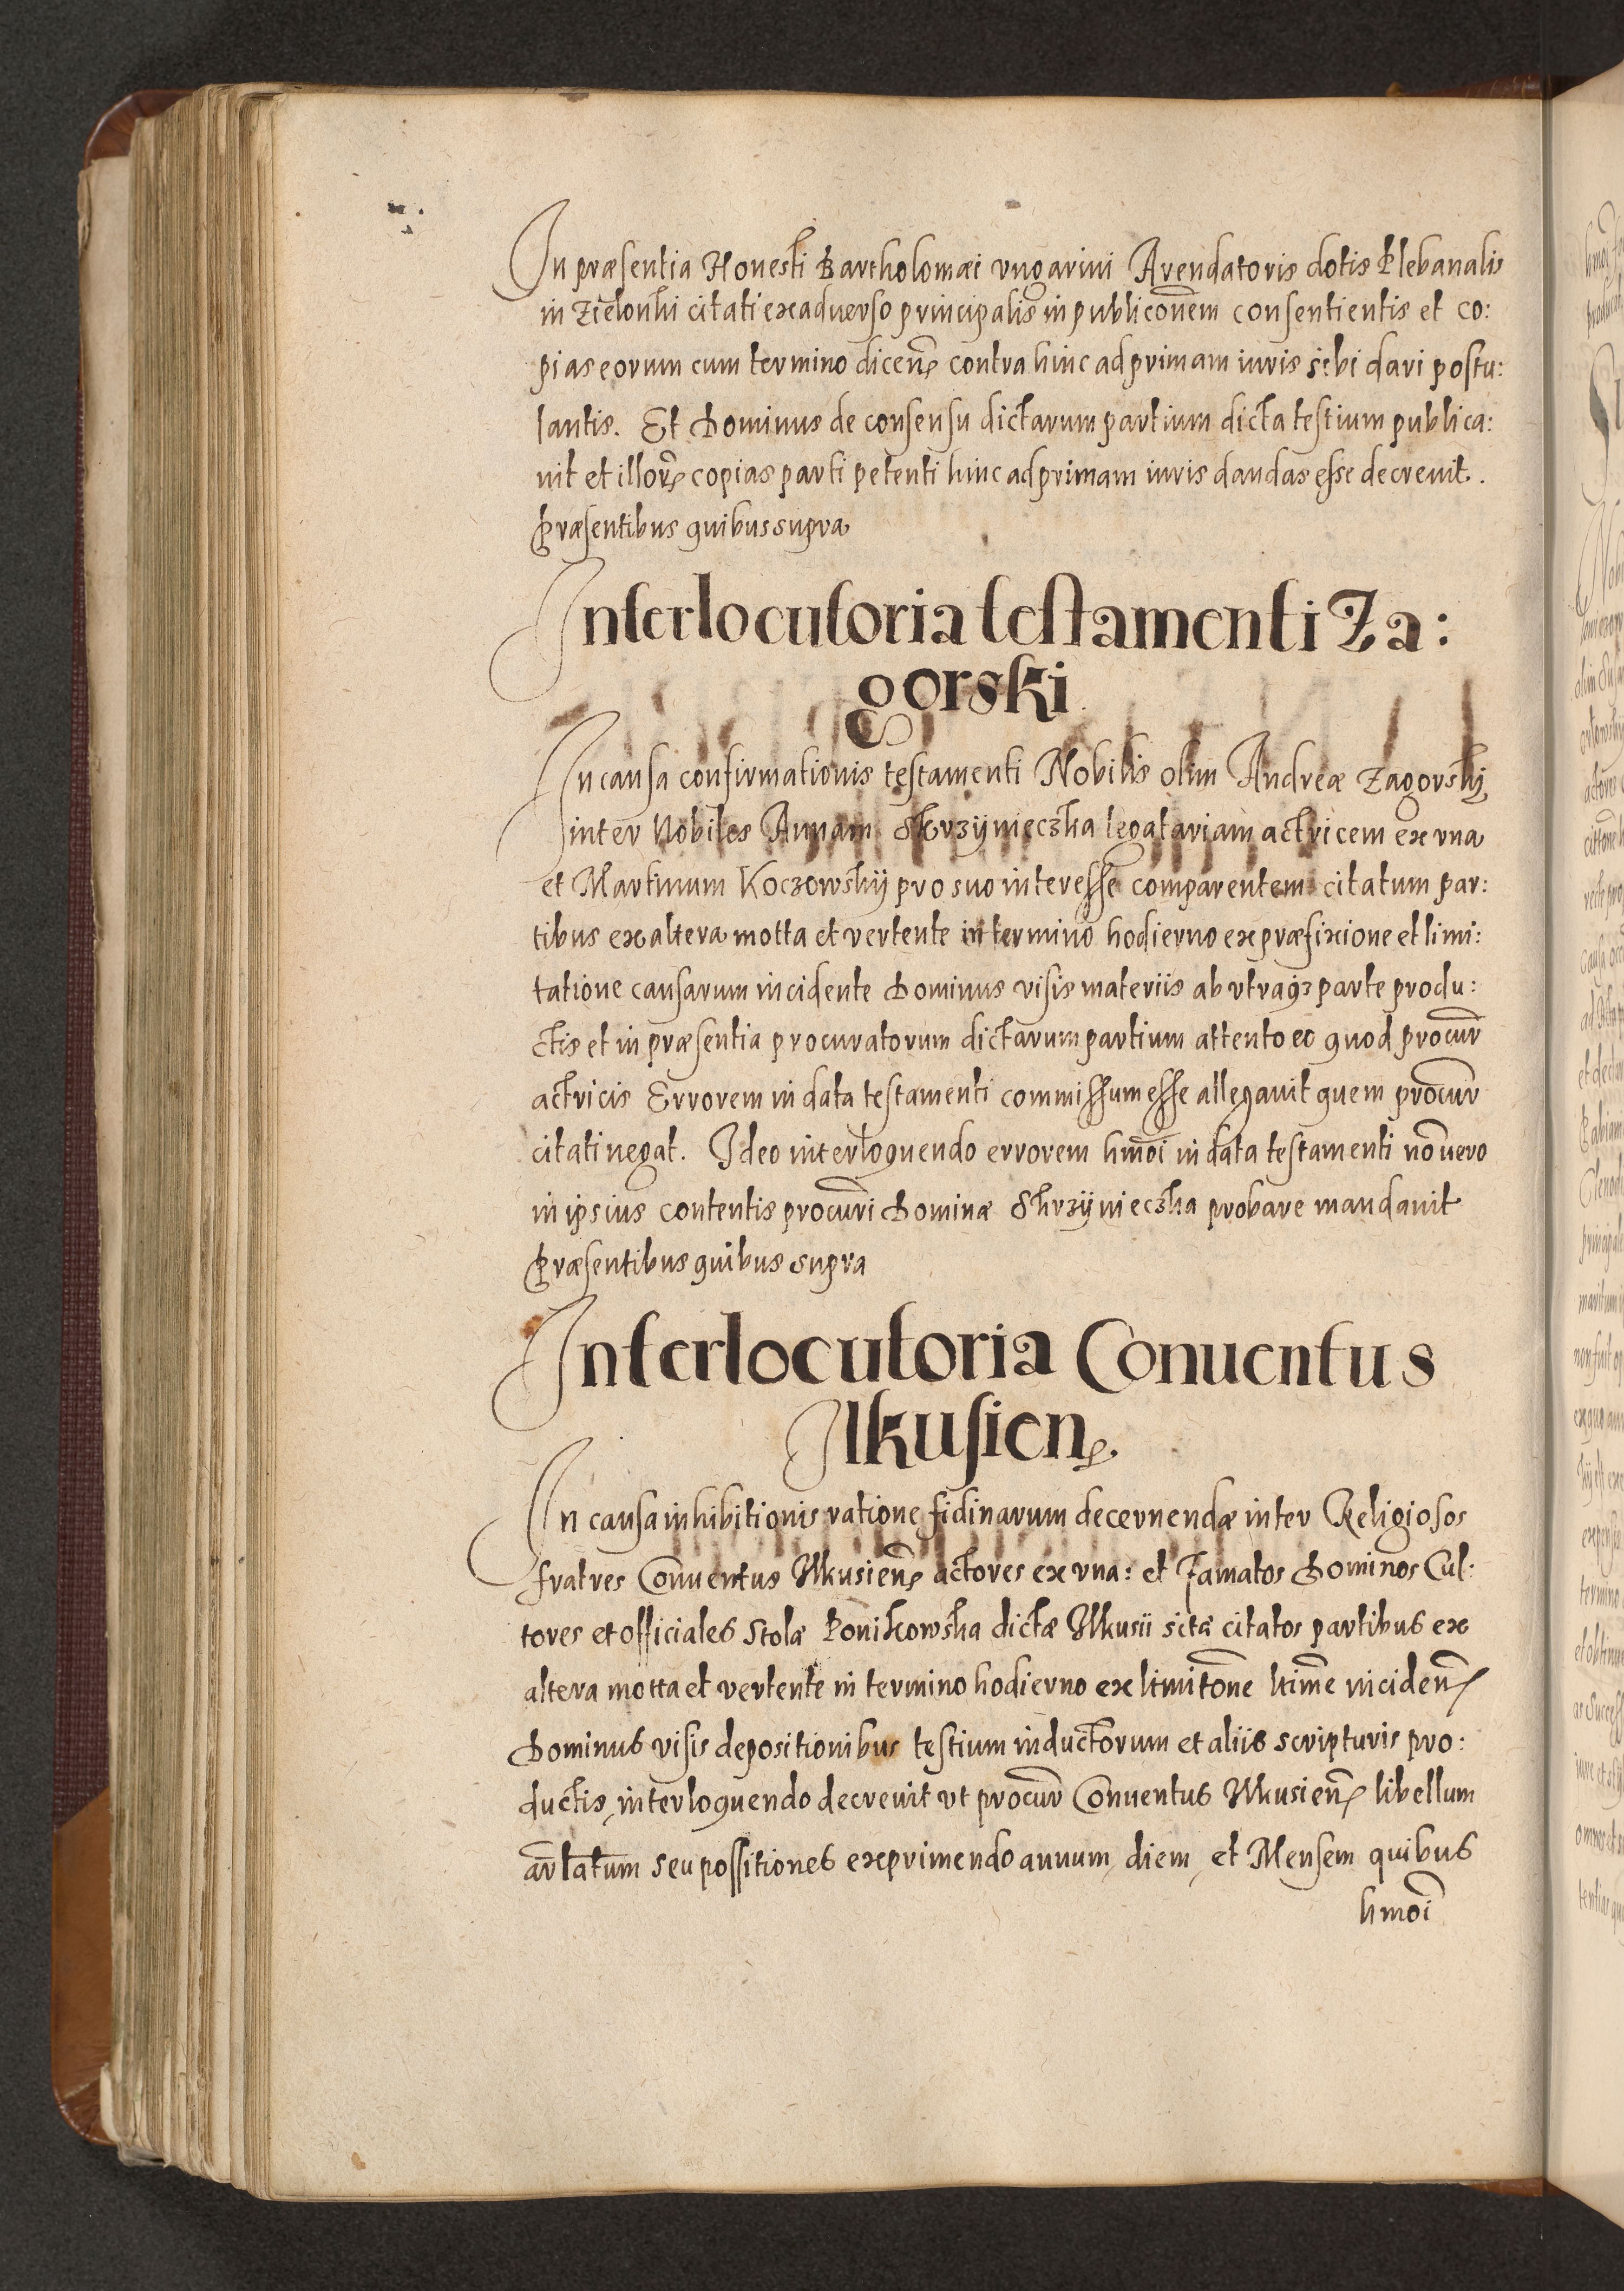 In præsentia Honesti Bartholomæi vngarini Arendatoris dotis Plebanalis
in Zielonki citati ex aduerso principalis in publicōnem consentientis et co:
pias eorum cum termino dicēn contra hinc ad primam iuris sibi dari postu:
lantis. Et Dominus de consensu dictarum partium dicta testium publica:
uit et illor̄ copias parti petenti hinc ad primam iuris dandas esse decreuit.
Præsentibus quibus supra
Interlocutoria testamenti Za:
gorski
In causa confirmationis testamenti Nobilis olim Andreæ Zagorskij
inter Nobiles Annam Skrzynieczka legatariam actricem ex vna
et Martinum Koczowskij pro suo interesse comparentem citatum par:
tibus ex altera motta et vertente in termino hodierno ex præfixione et limi:
tatione causarum incidente Dominus visis materiis ab vtraqꝫ parte produ:
ctis et in præsentia procuratorum dictarum partium attento eo quod procur̄
actricis Errorem in data testamenti commissum esse allegauit quem procur̄
citati negat. Ideo interloquendo errorem hmōi in data testamenti nō uero
in ipsius contentis procur̄i Dominæ Skrzynieczka probare mandauit
Præsentibus quibus supra
Interlocutoria Conuentus
Ilkusien
In causa inhibitionis ratione fidinarum decernendæ inter Religiosos
fratres Conuentus Ilkusien̄ actores ex vna: et Famatos Dominos Cul:
tores et officiales Stolæ Ponikowska dictæ Ilkusii sitæ citatos partibus ex
altera motta et vertente in termino hodierno ex limitōne ltīme inciden̄
Dominus visis depositionibus testium inductorum et aliis scripturis pro:
ductis, interloquendo decreuit vt procur̄ Conuentus Ilkusien̄ libellum
ar̄tatum seu possitiones exprimendo annum, diem, et Mensem quibus
hmōi